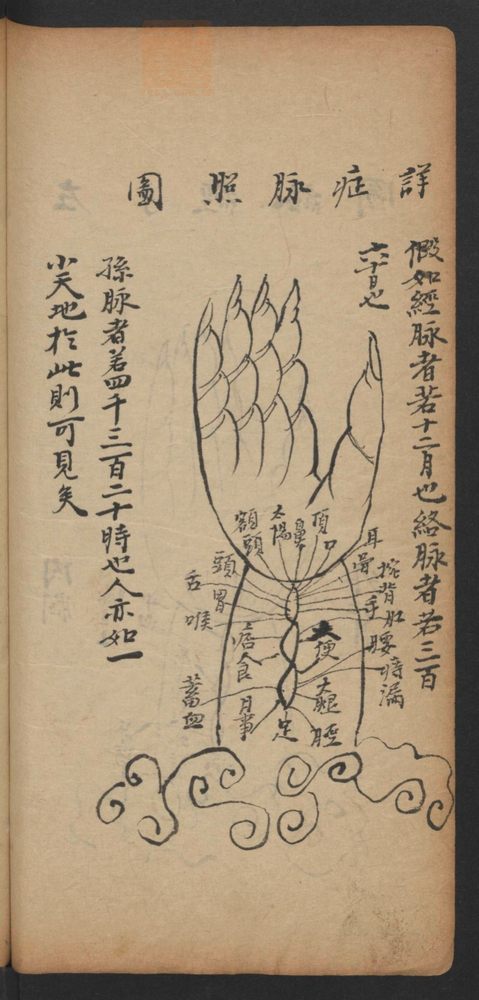 詳症脉照圖
假如經脉者若十二月也絡脉者若三百
六十日也
孫脉者若四千三百二十時也人亦如一
小天地於此則可見矣
耳
骨
頂
口
鼻
太陽
額頭
頸
胃
舌
喉
痞食
蓄血
月事
足
脛
大腿
痔漏
腰
肚
背
手